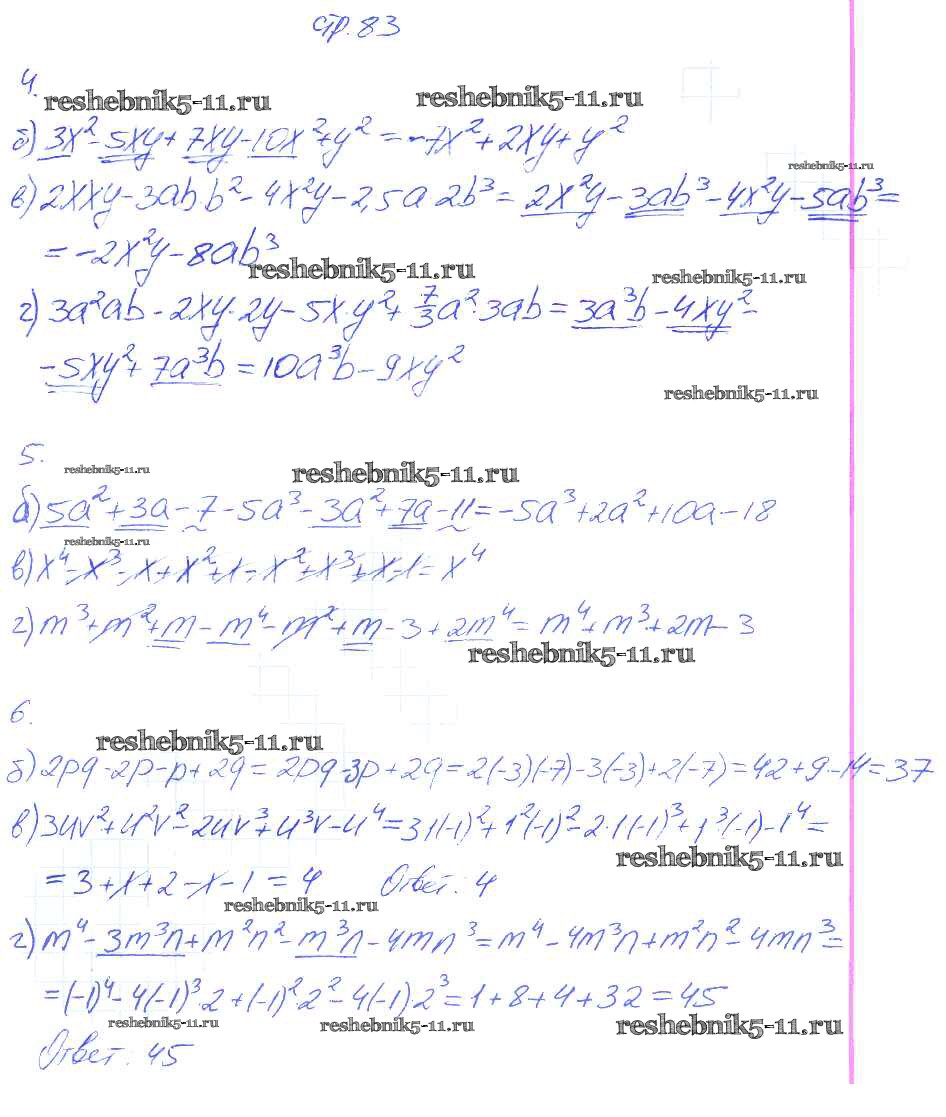 стр. 83
4.
reshebnik5-11.ru reshebnik5-11.ru
б) 3x² - 5xy + 7xy - 10x² + y² = -7x² + 2xy + y²
reshebnik5-11.ru
в) 2xxy - 3ab b² - 4x²y - 2,5a 2b³ = 2x²y - 3ab³ - 4x²y - 5ab³ =
= -2x²y - 8ab³
reshebnik5-11.ru reshebnik5-11.ru
г) 3a²ab - 2xy·2y - 5x·y² + 7/3a²·3ab = 3a³b - 4xy² -
- 5xy² + 7a³b = 10a³b - 9xy²
reshebnik5-11.ru
5.
reshebnik5-11.ru reshebnik5-11.ru
б) 5a² + 3a - 7 - 5a³ - 3a² + 7a - 11 = -5a³ + 2a² + 10a - 18
reshebnik5-11.ru
в) x⁴ - x³ - x + x² + 1 - x² + x³ + x - 1 = x⁴
г) m³ + m² + m - m⁴ - m² + m - 3 + 2m⁴ = m⁴ + m³ + 2m - 3
reshebnik5-11.ru
6.
reshebnik5-11.ru
б) 2pq - 2p - p + 2q = 2pq - 3p + 2q = 2(-3)(-7) - 3(-3) + 2(-7) = 42 + 9 - 14 = 37
в) 3uv² + u²v² - 2uv³ + u³v - u⁴ = 3·1(-1)² + 1²(-1)² - 2·1(-1)³ + 1³(-1) - 1⁴ =
reshebnik5-11.ru
= 3 + 1 + 2 - 1 - 1 = 4 Ответ: 4
reshebnik5-11.ru
г) m⁴ - 3m³n + m²n² - m³n - 4mn³ = m⁴ - 4m³n + m²n² - 4mn³ =
= (-1)⁴ - 4(-1)³·2 + (-1)²·2² - 4(-1)·2³ = 1 + 8 + 4 + 32 = 45
reshebnik5-11.ru reshebnik5-11.ru reshebnik5-11.ru
Ответ: 45